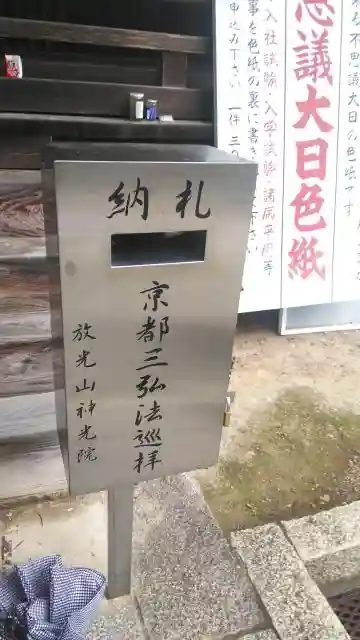 納札
京都三弘法巡拝
放光山神光院
不思議大日
思議大日色紙
入社試験・入学試験・諸願平癒等
事を色紙の裏に書き
申込み下さい
一件 三